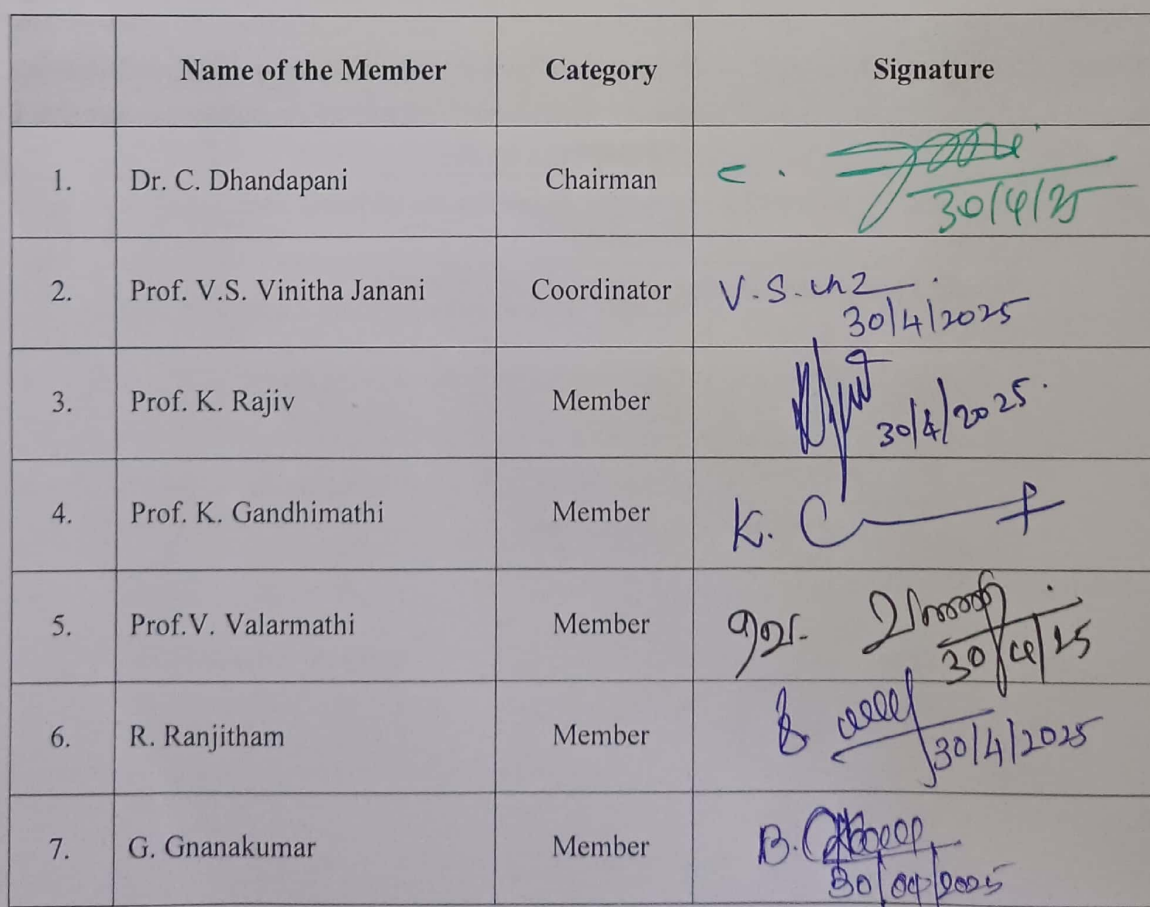 Name of the Member Category Signature
1. Dr. C. Dhandapani Chairman C.
30/4/25
2. Prof. V.S. Vinitha Janani Coordinator V.S.
30/4/2025
3. Prof. K. Rajiv Member
30/4/2025.
4. Prof. K. Gandhimathi Member K.
5. Prof.V. Valarmathi Member
30/4/25
6. R. Ranjitham Member
30/4/2025
7. G. Gnanakumar Member
30/04/2025